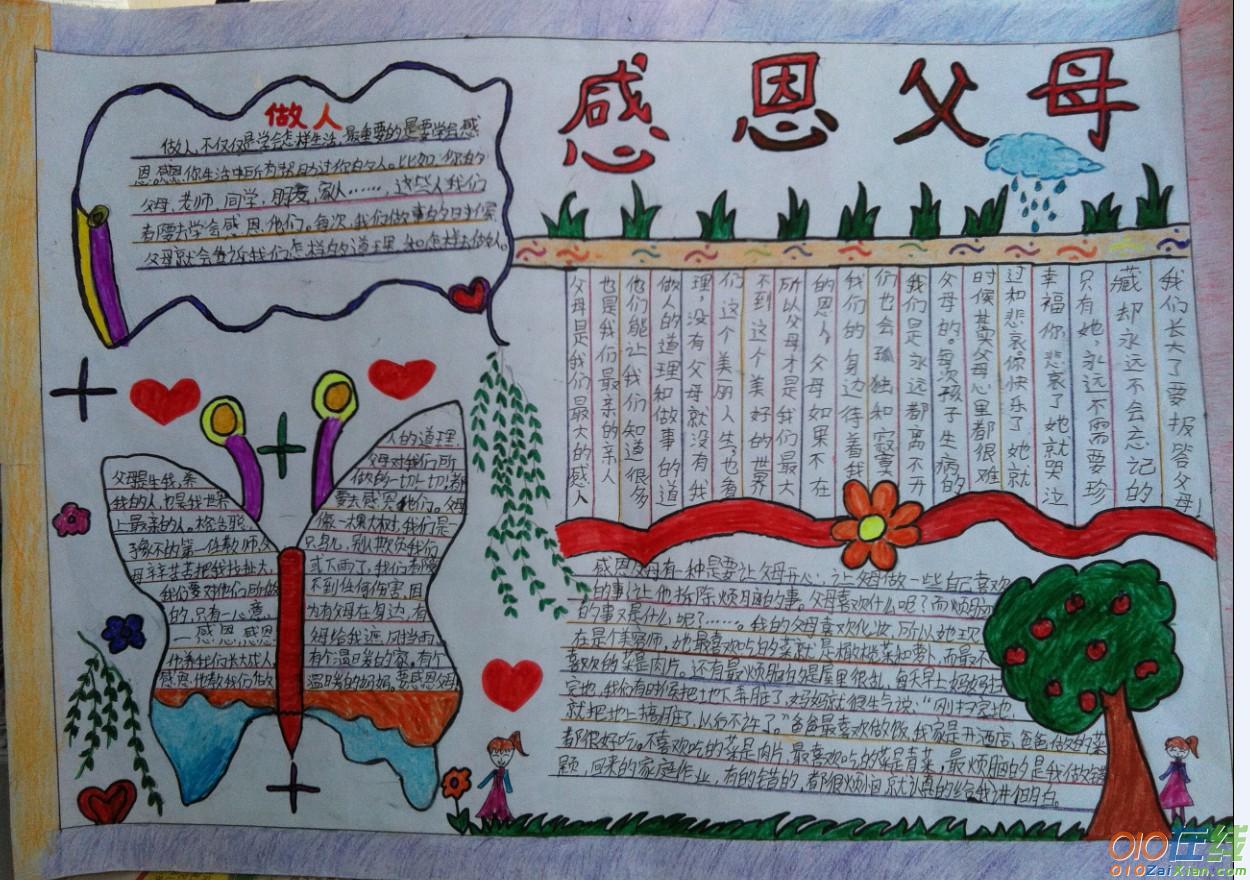 感恩父母
做人
做人,不仅仅是学会怎样生活,最重要的是要学会感
恩。感恩你生活中所有帮助过你的人。比如:你的
父母,老师,同学,朋友,家人……,这些人我们
都要去学会感恩他们。每次,我们做事的时候
父母就会告诉我们怎样的道理,和怎样去做人。
父母是生我,养
我的人,也是我世界
上最亲的人。
的第一任教师,父
母辛辛苦苦把我拉扯大,
我们要对他们所做
的,只有一心意
—感恩,感恩
他养我们长大成人,
感恩,他教我们做
人的道理,
父母对我们所
做的一切一切!都
要去感恩他们。父母
像一棵大树,我们是一
只小鸟,别人欺负我们
或下雨了,我们都
不到任何伤害,因
为有父母在身边,有
母给我遮风挡雨,
有个温暖的家。有个
温暖的妈妈。要感恩
我们长大了要报答父母!
藏却永远不会忘记的
只有她,永远不需要珍
幸福你,悲哀了她就哭泣
过和悲哀,你快乐了她就
时候其实父母心里都很难
父母的。每次孩子生病的
我们是永远都离不开
们也会孤独和寂寞。
我们的身边待着我
的恩人,父母如果不在
所以父母才是我们最大
不到这个美好的世界
们这个美丽人生,也看
理,没有父母就没有我
做人的道理和做事的道
他们能让我们知道很多
也是我们最亲的亲人
父母是我们最大的感人
感恩父母有一种是要让父母开心,让父母做一些自己喜欢
的事,让他拆除烦脑的事。父母喜欢什么呢?而烦脑
的事又是什么呢?……。我的父母喜欢化妆,所以她现
在是个美容师,她最喜欢吃的菜就是橄榄菜和萝卜,而最不
喜欢的菜是肉片。还有最烦脑的是屋里很乱,每天早上妈妈扫
完地,我们有时候把地下弄脏了,妈妈就很生气说:“刚扫完地,
就把地上搞脏了,以后不许了。”爸爸最喜欢做饭,我家是开酒店,爸爸做的菜
都很好吃。不喜欢吃的菜是肉片,最喜欢吃的菜是青菜,最烦脑的是我做错
题,回来的家庭作业,有的错的,都很烦恼就认真的给我讲个明白。
010在线
010ZaiXian.com